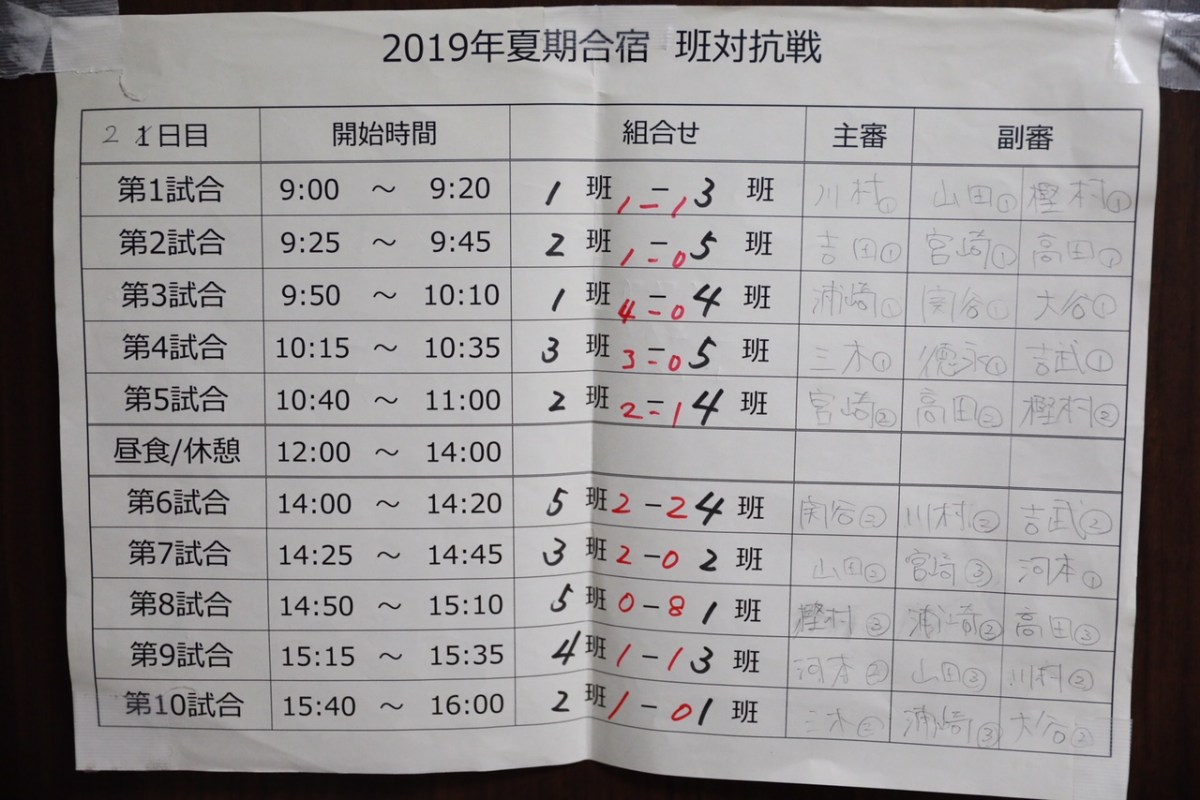 2019年夏期合宿 班対抗戦
2 1日目 開始時間 組合せ 主審 副審
第1試合 9:00 ～ 9:20 1 班 1-1 3 班 川村① 山田① 樫村①
第2試合 9:25 ～ 9:45 2 班 1-0 5 班 吉田① 宮崎① 高田①
第3試合 9:50 ～ 10:10 1 班 4-0 4 班 浦崎① 関谷① 大谷①
第4試合 10:15 ～ 10:35 3 班 3-0 5 班 三木① 徳永① 吉武①
第5試合 10:40 ～ 11:00 2 班 2-1 4 班 宮崎② 高田② 樫村②
昼食/休憩 12:00 ～ 14:00
第6試合 14:00 ～ 14:20 5 班 2-2 4 班 関谷② 川村② 吉武②
第7試合 14:25 ～ 14:45 3 班 2-0 2 班 山田② 宮崎③ 河本①
第8試合 14:50 ～ 15:10 5 班 0-8 1 班 樫村③ 浦崎② 高田③
第9試合 15:15 ～ 15:35 4 班 1-1 3 班 河本② 山田③ 川村②
第10試合 15:40 ～ 16:00 2 班 1-0 1 班 三木② 浦崎③ 大谷②